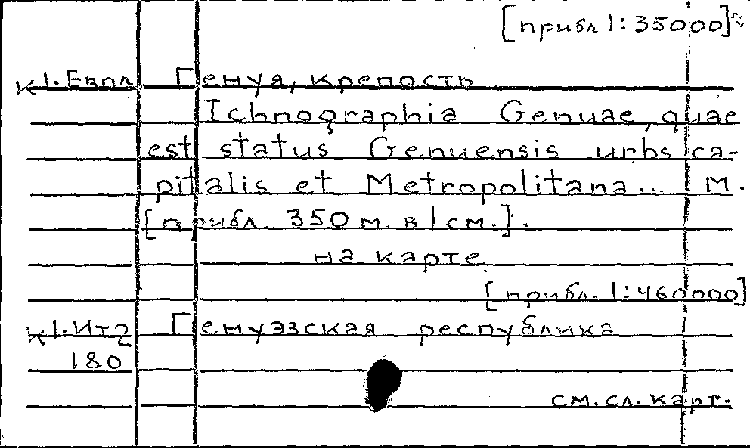 [прибл 1:35000]
К1.Евпл Генуа, крепость
Ichnographia Genuae, quae
est status Genuensis urbs ca-
pitalis et Metropolitana... М.
[прибл. 350 м. в 1 см.].
на карте
[прибл. 1:460000]
К1.Ит2 Генуэзская республика
180
см. сл. карт.